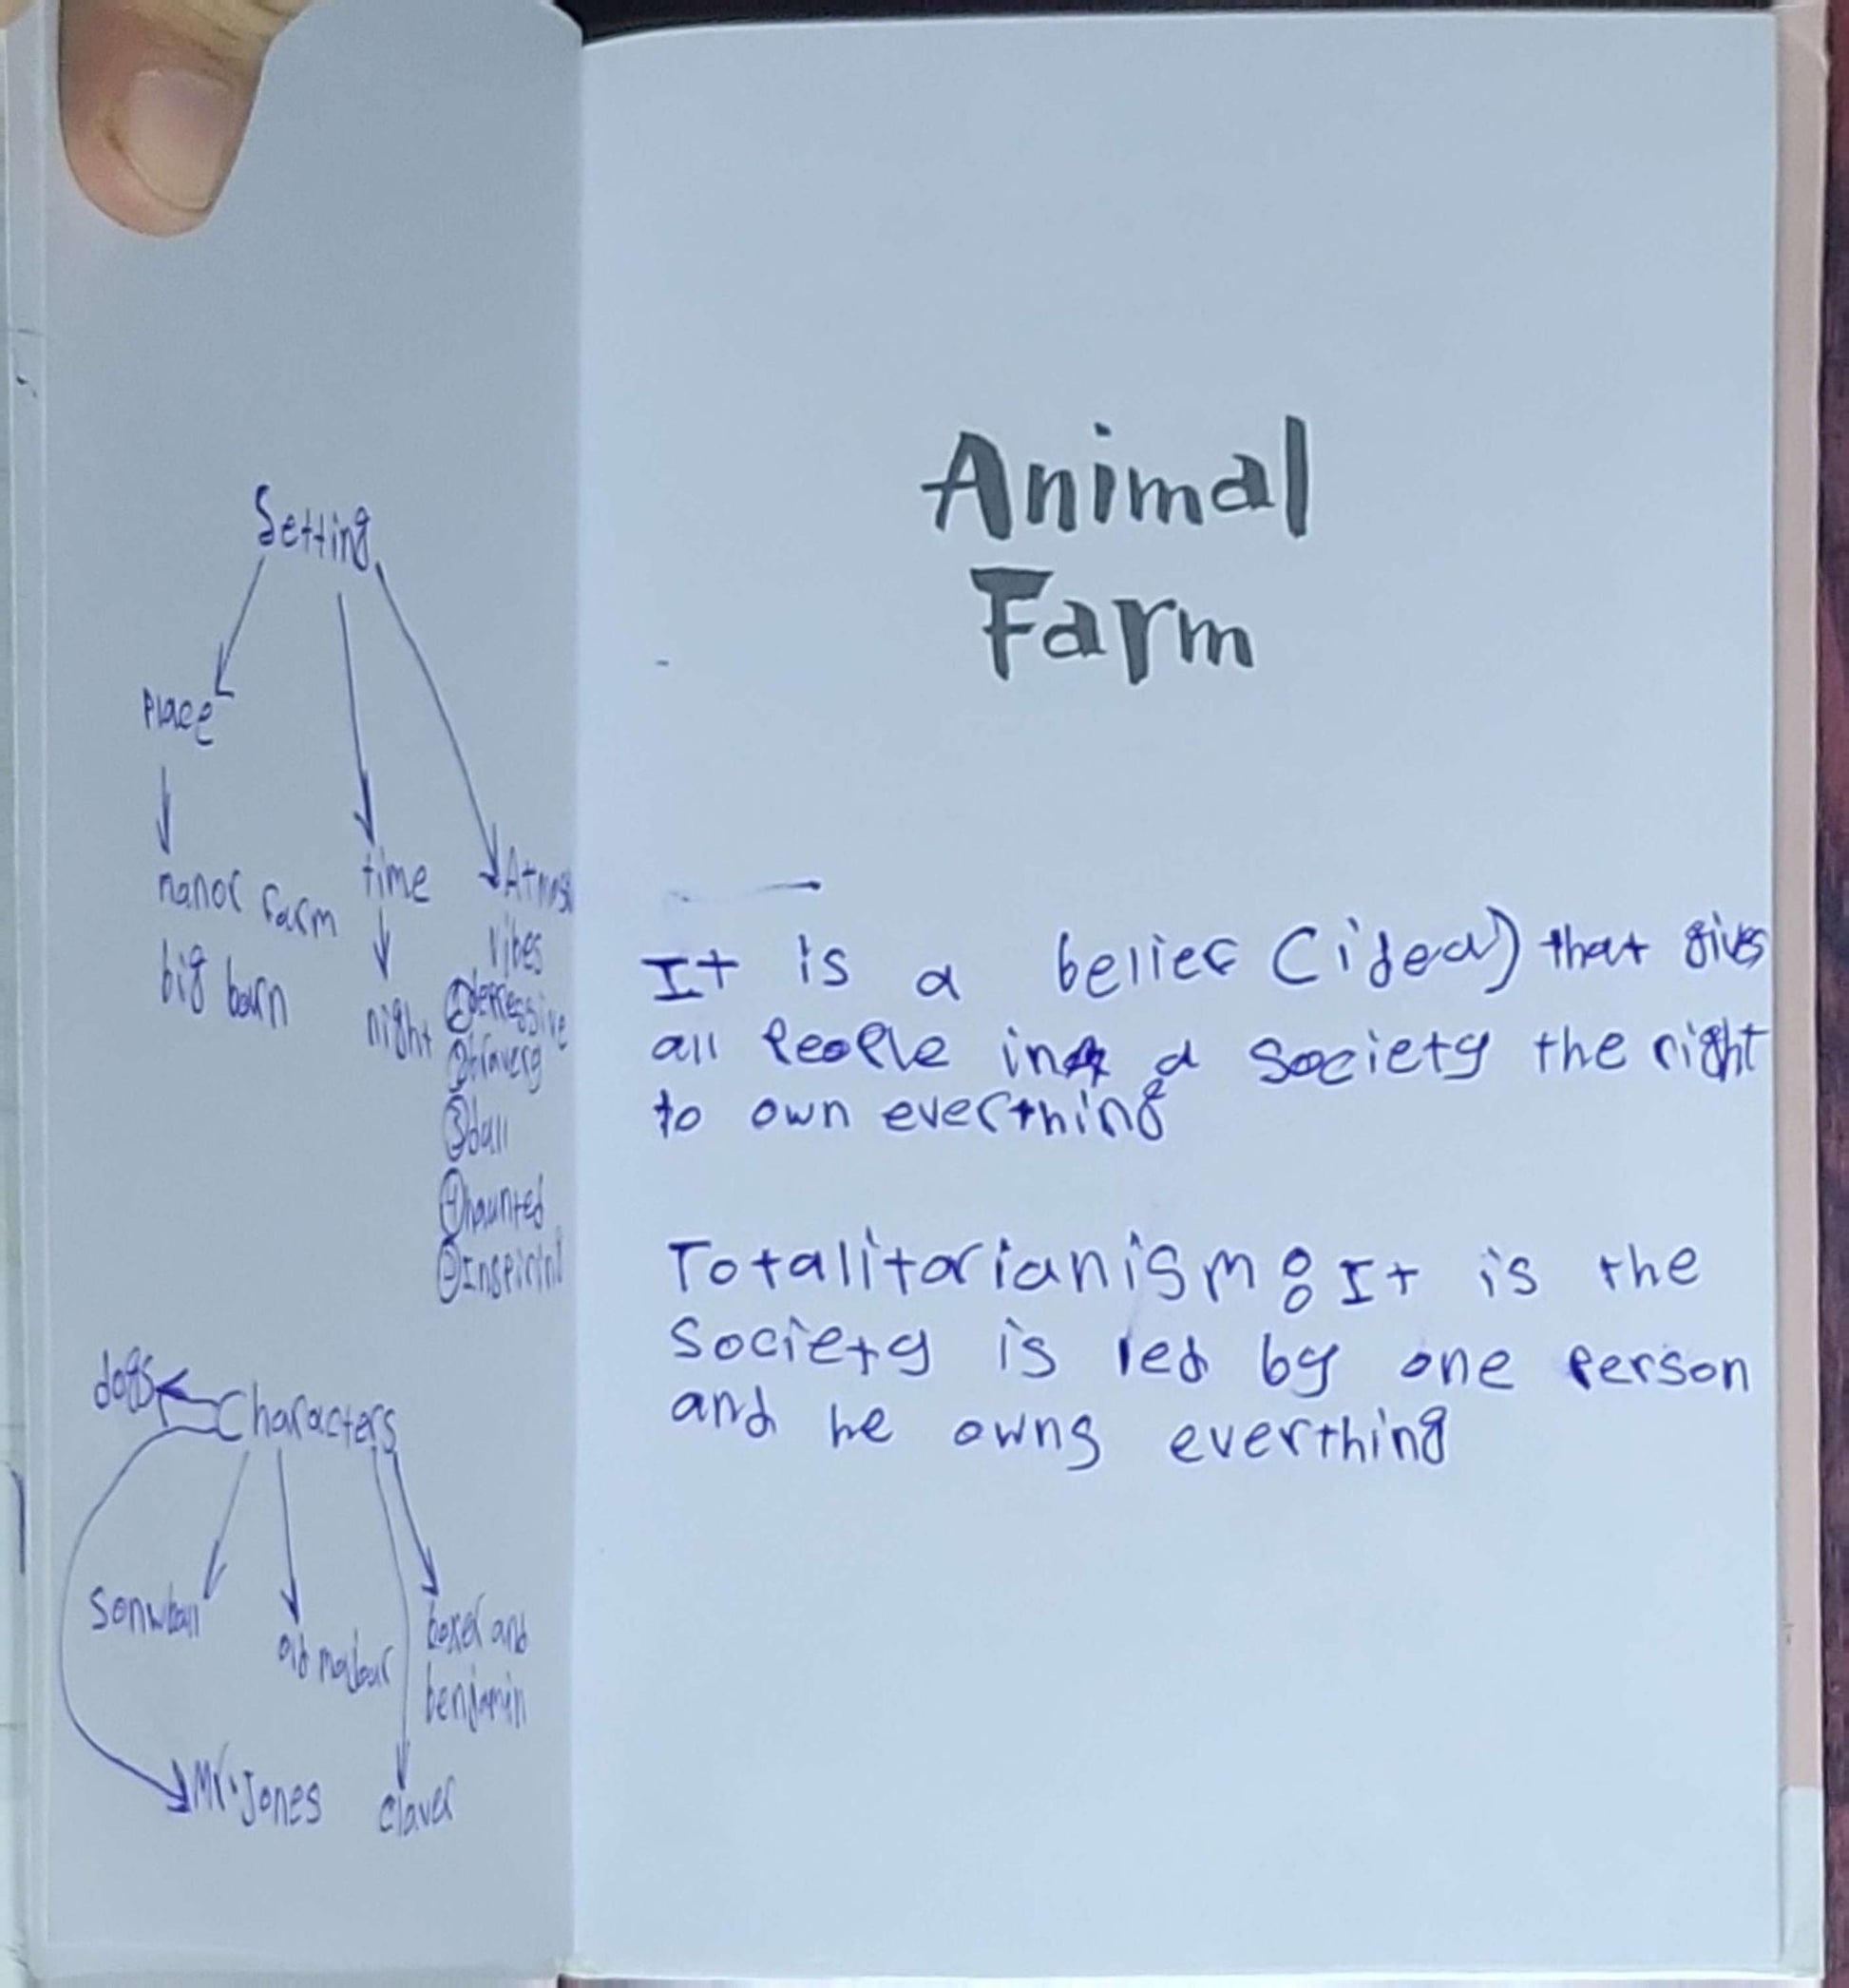 Setting
Place
nanor farm
big barn
time
night
Atmos
vibes
① depressive
② bravery
③ bull
④ haunted
⑤ Inspirin
Characters
dogs
sonwball
old majour
boxer and
benjamin
Mr. Jones
claver
Animal
Farm
It is a belief (idea) that gives
all People in a Society the right
to own everthing
Totalitarianism: It is the
Society is led by one person
and he owns everthing